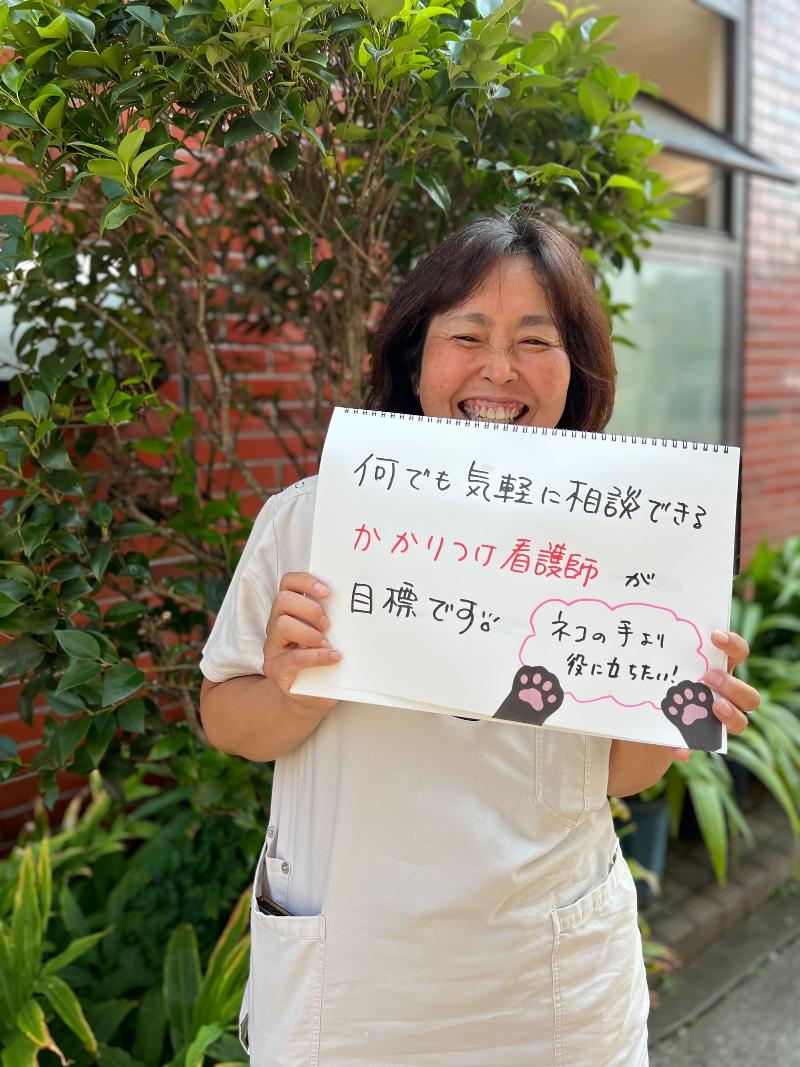 何でも気軽に相談できる
かかりつけ看護師が
目標です。
ネコの手より
役に立ちたい!